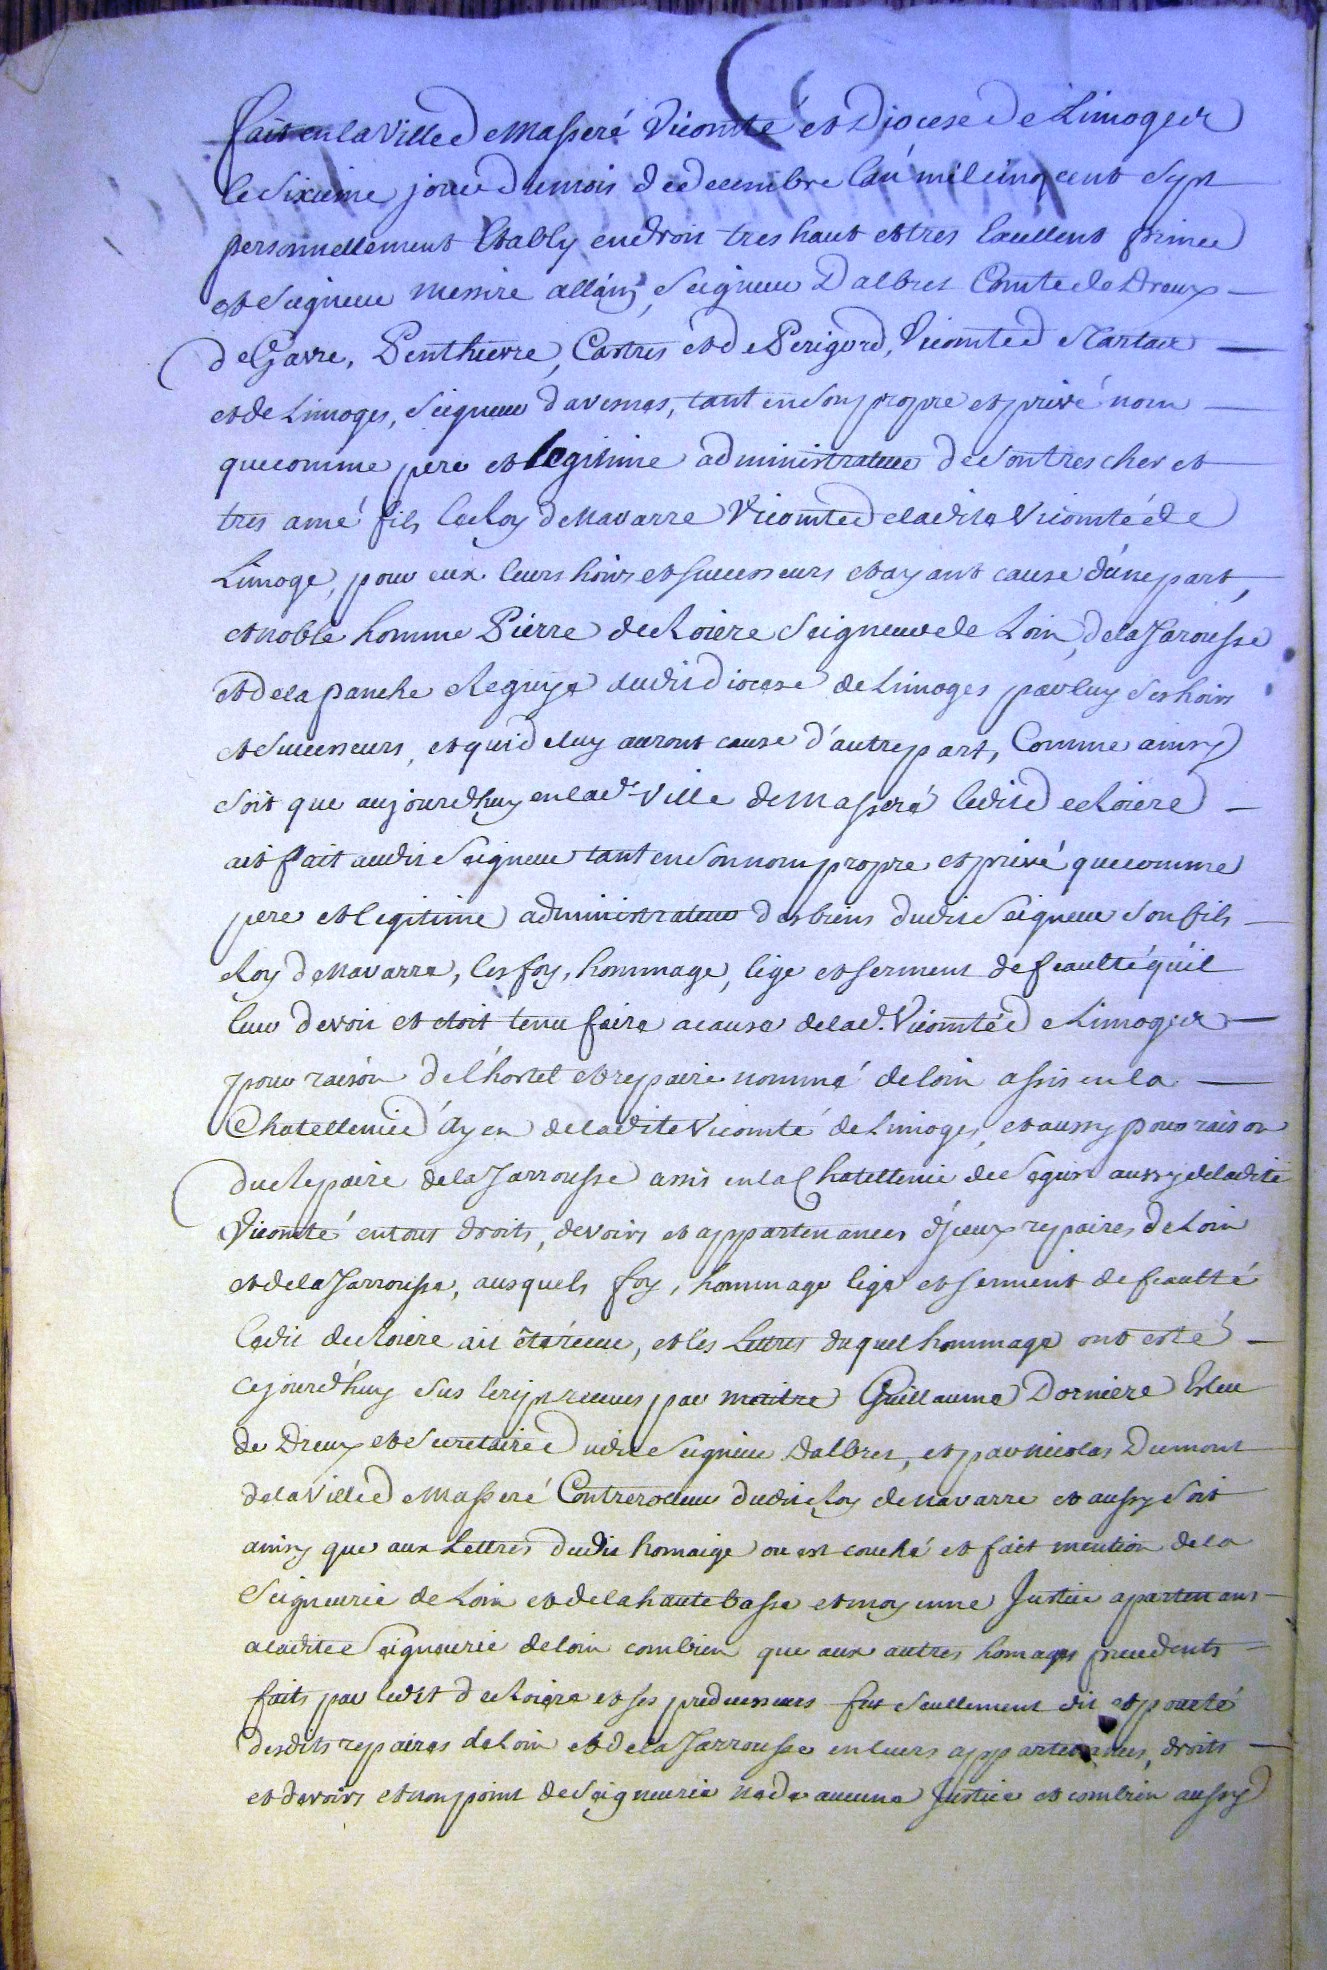 fait en la Ville de Masseré Vicomté et Diocese de Limoges
le Sixieme jour du mois de decembre l'an mil cinq cent Sept
personnellement Etably en droit tres haut et tres Excellent prince
et Seigneur messire allain, Seigneur Dalbret Comte de Dreux
de Gavre, Penthievre, Castres et de Perigord, Vicomte de Tartas
et de Limoges, Seigneur d'avesnes, tant en son propre et privé nom
que comme pere et legitime administrateur de Son tres cher et
tres amé fils le Roy de Navarre Vicomte de ladite Vicomté de
Limoge, pour eux leurs hoirs et successeurs et ayant cause d'une part,
et noble homme Pierre de Roiere Seigneur de Loin, de la Jarousse
et de la panche dudit diocese de Limoges par luy Ses hoirs
et Successeurs, et qui de luy auront cause d'autre part, Comme ainsy
Soit que aujourd'huy en lade Ville de Masseré ledit de Roiere
ait fait audit Seigneur tant en Son nom propre et privé que comme
pere et legitime administrateur des biens dudit Seigneur Son fils
Roy de Navarre, les foy, hommage, lige et serment de feaulté qu'il
luy devoit et étoit tenu faire a cause de lad. Vicomté de Limoges
pour raison de l'hostel et repaire nommé de loin assis en la
Chatellenie d'Ayen de ladite Vicomté de Limoges, et aussy pour raison
du Repaire de la Jarrousse assis en la Chatellenie de Segur aussy de ladite
Vicomté en tous droits, devoirs et appartenances d'jceux repaires de Loin
et de la Jarrousse, ausquels foy, hommage lige et serment de feaulté
Ledit de Roiere ait été réceu, et les Lettres duquel hommage ont esté
cejourd'huy Sus script receues par maitre Guillaume Dorniere Esleu
de Dreux et Secretaire dudit Seigneur Dalbret, et par nicolas Dumont
de la Ville de Masseré Contreroleur dudit Roy de Navarre et aussy Soit
ainsy que aux Lettres dudit homaige ou est couché et fait mention de la
Seigneurie de Loin et de la haute basse et moyenne Justice apartenans
a ladite Seigneurie de loin combien que aux autres homages precedents
faits par ledit de Roiere et ses predecesseurs fut Seullement dit et pourté
desdits repaires de Loin et de la Jarrousse en luers appartenances, droits
et devoirs et non point de Seigneurie ne de aucune Justice et combien aussy